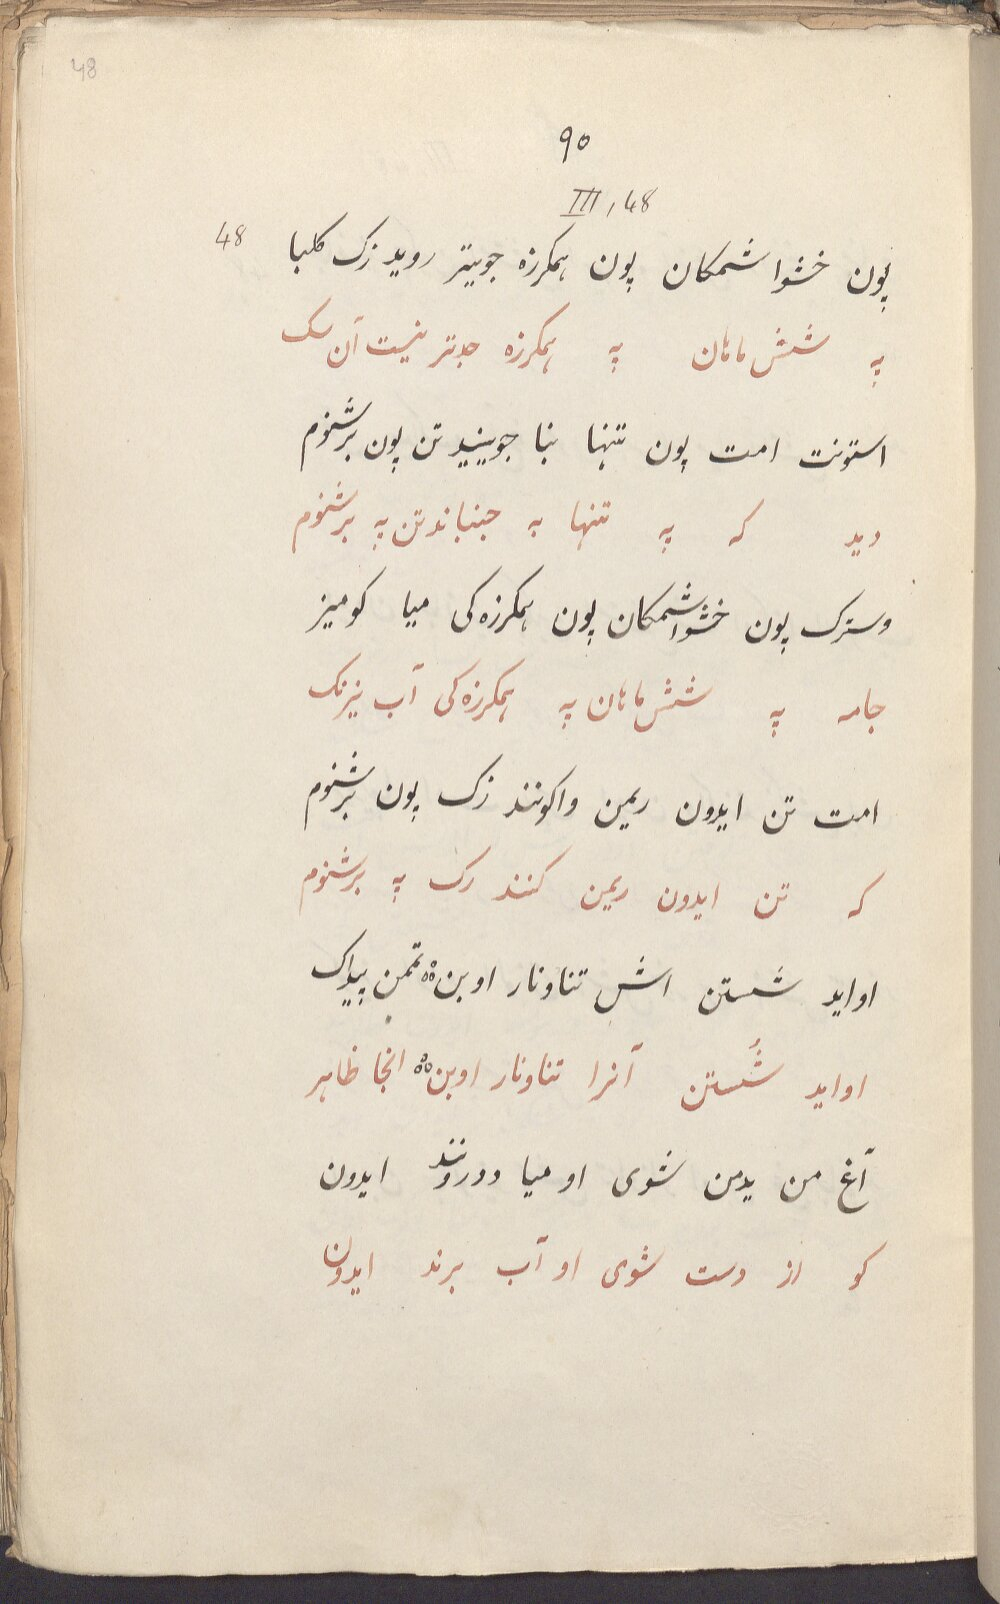 48
۹۰
III, 48
48 پون خشواشمکان پون همکرزه جوییتر روید زک کلبا
په شش ماهان په همکرزه جدتر نیست آن سک
استونت امت پون تنها بنا جویند تن پون برشنوم
دید که په تنها به جنباند تن په برشنوم
وسترک پون خشواشمکان پون همکرزه کی میا کومیز
جامه په شش ماهان په همکرزه کی آب نیرنک
امت تن ایدون ریمن واکونند زک پون برشنوم
که تن ایدون ریمن کنند رک په برشنوم
اواید شستن اش تناونار اوبن تمن پیداک
اواید شُستن آنرا تناونار اوبن انجا ظاهر
آغ من یدمن شوی او میا ددرونند ایدون
کو از دست شوی او آب برند ایدون